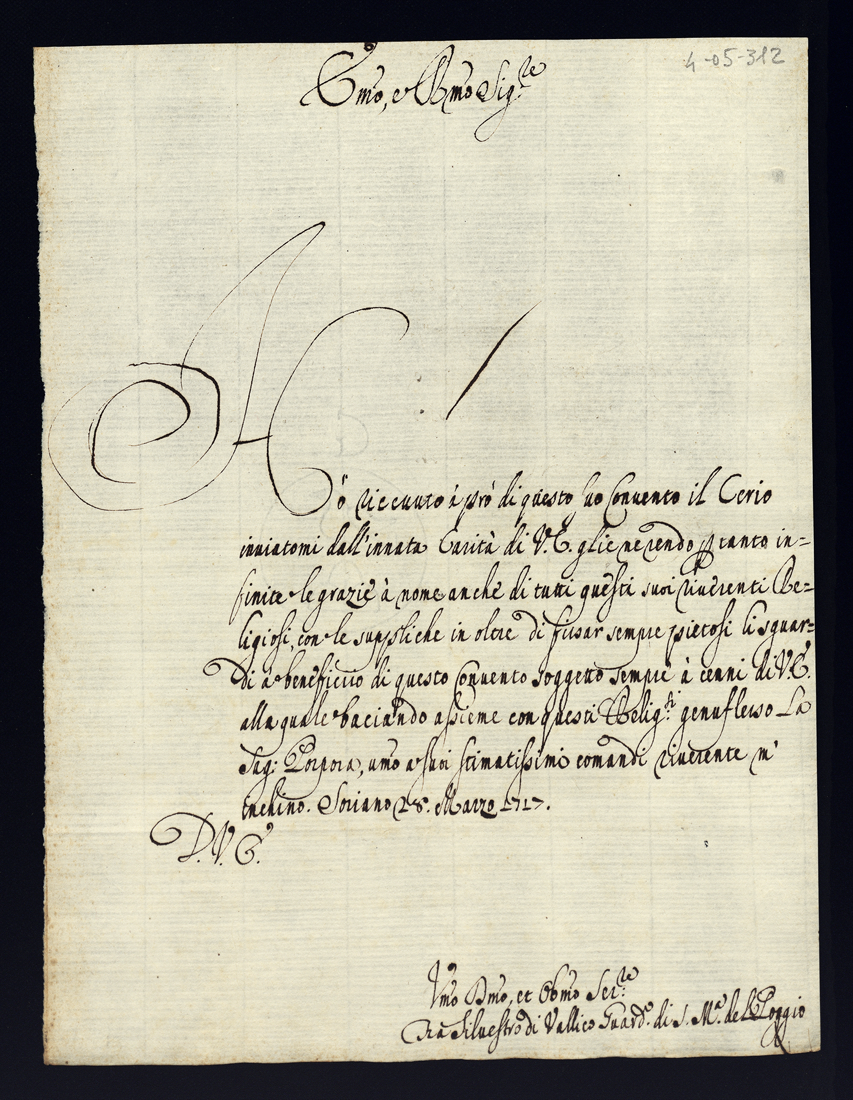 4-05-312
Emo, e Rmo Sig:re
Hò riceuuto à prò di questo suo Conuento il Cerio
inuiatomi dall'innata Carità di V.E. glie ne rendo ꝑtanto in=
finite le grazie à nome anche di tutti questi suoi riuerenti Re=
ligiosi, con le suppliche in oltre di fissar sempre pietosi li sguar=
di à beneficio di questo Conuento soggetto sempre à cenni di V.E.
alla quale baciando assieme con questi Relig:si genuflesso La
Sag: Porpora, umo a suoi stimatissimi comandi riuerente m'
inchino. Soriano 28. Marzo 1717.
D.V.E.
Vmo Dmo, et Obmo Ser:re
Fra Siluestro di Vallico Guard:o di S. M:a del Poggio